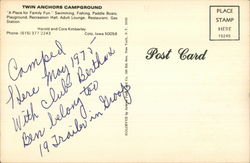 TWIN ANCHORS CAMPGROUND
"A Place for Family Fun." Swimming, Fishing, Paddle Boats,
Playground, Recreation Hall, Adult Lounge, Restaurant, Gas
Station.
Harold and Cora Kimberley
Phone (515) 377 2243 Colo, Iowa 50056
Camped
Here May 1973
With Club Berthax
Ben belong too
19 Trailer in Group
Post Card
PLACE
STAMP
HERE
19245